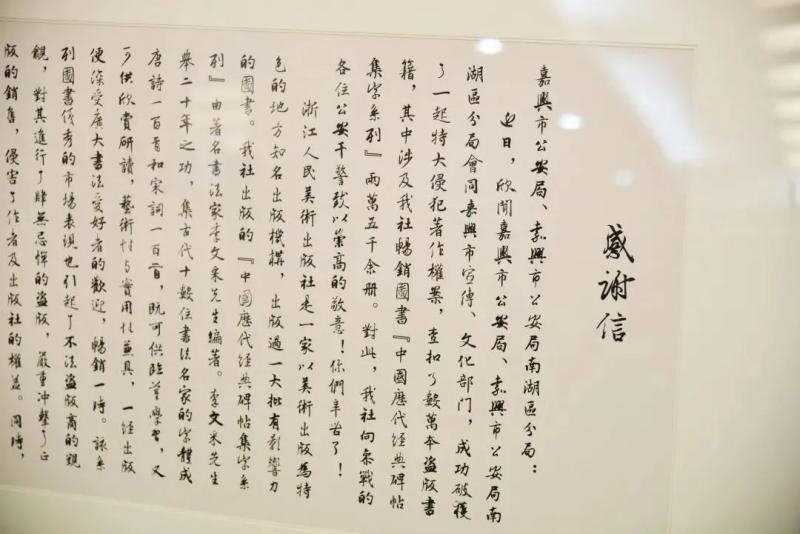 感謝信
嘉興市公安局、嘉興市公安局南湖區分局：
近日，欣聞嘉興市公安局、嘉興市公安局南
湖區分局會同嘉興市宣傳、文化部門，成功破獲
了一起特大侵犯著作權案，查扣了數萬本盜版書
籍，其中涉及我社暢銷圖書『中國歷代經典碑帖
集字系列』兩萬五千余册。對此，我社向參戰的
各位公安干警致以崇高的敬意！你們辛苦了！
浙江人民美術出版社是一家以美術出版為特
色的地方知名出版機構，出版過一大批有影響力
的圖書。我社出版的『中國歷代經典碑帖集字系
列』由著名書法家李文采先生編著。李文采先生
舉二十年之功，集古代十數位書法名家的字體成
唐詩一百首和宋詞一百首，既可供臨摹學習，又
可供欣賞研讀，藝術性与實用性兼具，一經出版
便深受廣大書法愛好者的歡迎，暢銷一時。該系
列圖書優秀的市場表現也引起了不法盜版商的覬
覦，對其進行了肆無忌憚的盜版，嚴重冲擊了正
版的銷售，侵害了作者及出版社的權益。同時，